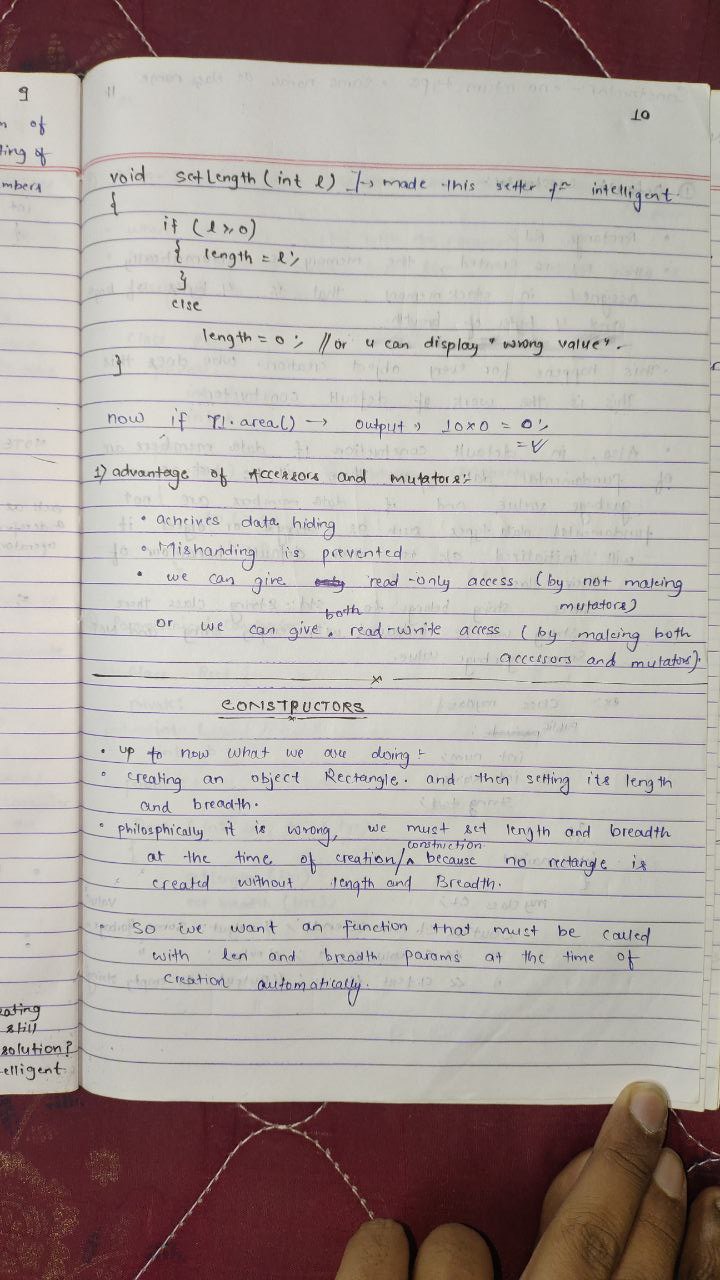 9
of
ting of
mbers
10
void setLength (int l) } → made this setter fn intelligent.
{
if (l >, 0)
{ length = l;
}
else
length = 0; // or u can display "wrong value".
}
now if r1.area() → output, 10x0 = 0;
=
1) advantage of Accessors and mutators:-
• acheives data hiding
• Mishanding is prevented
• we can give read-only access (by not making
mutators)
or we can give both read-write access (by making both
accessors and mutators).
x
CONSTRUCTORS
• up to now what we are doing:-
• creating an object Rectangle. and then setting its length
and breadth.
• philosphically it is wrong, we must set length and breadth
at the time of creation/construction because no rectangle is
created without length and Breadth.
• So we want an function that must be called
with len and breadth params at the time of
creation automatically.
eating
still
solution?
elligent